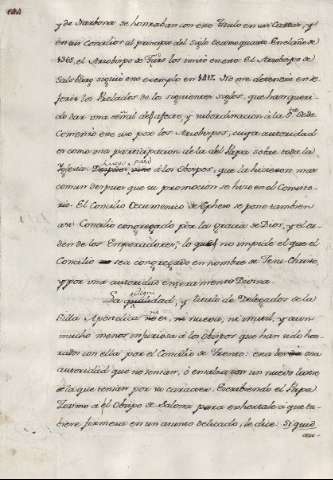 y de Narbona se honraban con este titulo en sus Cartas, y
en sus Concilios al principio del siglo decimoquarto. En el año de
1365. el Arzobispo de Tours los unió en esto. El Arzobispo de
siguió ese exemplo en 1417. No me detendré en re-
ferir los Prelados de los siguientes siglos, que han queri-
do dar una señal de afecto, y subordinacion á la S.ta Sede.
Comenzó ese uso por los Arzobispos, cuya autoridad
es como una participacion de la del Papa sobre toda la
Iglesia. Despues pasó á los Obispos, que la hicieron mas
comun despues que su promocion se hizo en el Consisto-
rio. El Concilio Ecumenico de Epheso se pone tambien
Concilio congregado por la Gracia de Dios, y el or-
den de los Emperadores; lo no impide el que el
Concilio sea congregado en nombre de Jesu-Christo,
y por una autoridad enteramente Divina.
La qualidad, y titulo de Delegados de la
Silla Apostolica no es, ni nueva, ni inutil, y aun
mucho menos injuriosa á los Obispos que han sido hon-
rados con ella por el Concilio de Trento: era una
autoridad que no tenian, ó un nuevo lustre
á la que tenian por su caracter. Escribiendo el Papa
Zosimo á el Obispo de Salona para exhortarle á que tu-
biese firmeza en un asunto delicado, le dice: Si quid